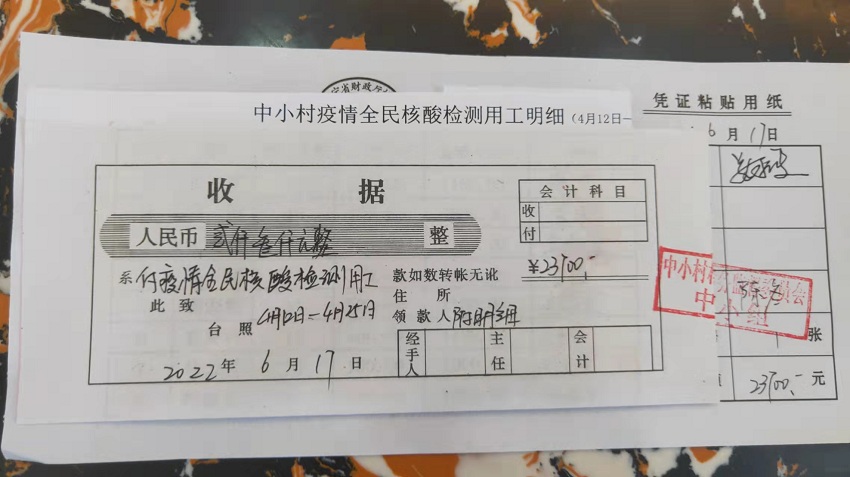 省财政厅
中小村疫情全民核酸检测用工明细（4月12日—
收 据
会计科目
收
付
人民币 贰仟叁仟元整 整
¥2300,-
系 付疫情全民核酸检测用工 款如数转帐无讹
此致 住所
台照 4月12日—4月25日 领款人 附明细
经手人 主任 会计
2022年 6月 17日
凭证粘贴用纸
6月17日
中小村村
委员会
中小组
张
2300,- 元